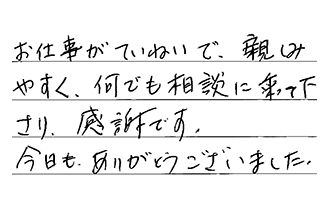 お仕事がていねいで、親しみ
やすく、何でも相談に乗って下
さり、感謝です。
今日も、ありがとうございました。